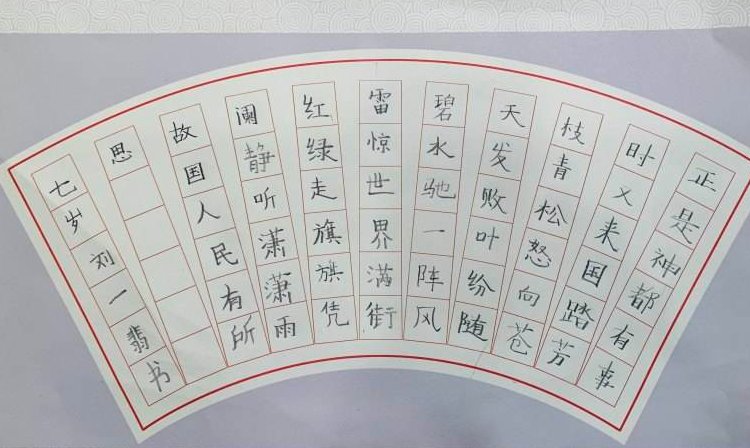 正是神都有事
时又来国踏芳
枝青松怒向苍
天发败叶纷随
碧水驰一阵风
雷惊世界满街
红绿走旗旗凭
阑静听潇潇雨
故国人民有所
思
七岁刘一翡书